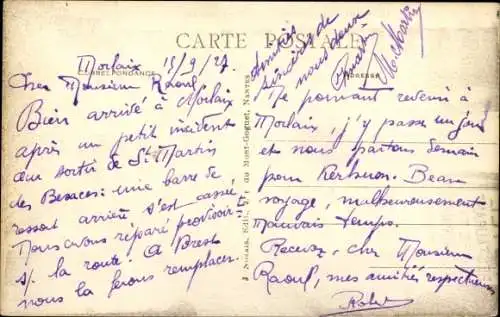 CARTE POSTALE
CORRESPONDANCE
ADRESSE
Morlaix 15/9/27.
Cher Monsieur Raoul
Bien arrivé à Morlaix
après un petit incident
au sortir de St Martin
des Besaces: une barre de
ressort arrière s'est cassée
Nous avons réparé provisoir-
s/ la route. A Brest
nous la ferons remplacer.
Ne pouvant revenir à
Morlaix, j'y passe un jour
et nous partons demain
pour Kerhuon. Beau
voyage, malheureusement
Mauvais temps.
Recevez cher Monsieur
Raoul, mes amitiés respectueuses
Robert
Amitiés
sincères de
nous deux
du Mont-Goguet, NANTES